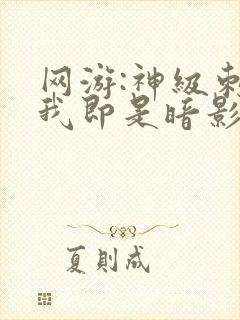 网游:神级刺
我即是暗影
夏则成